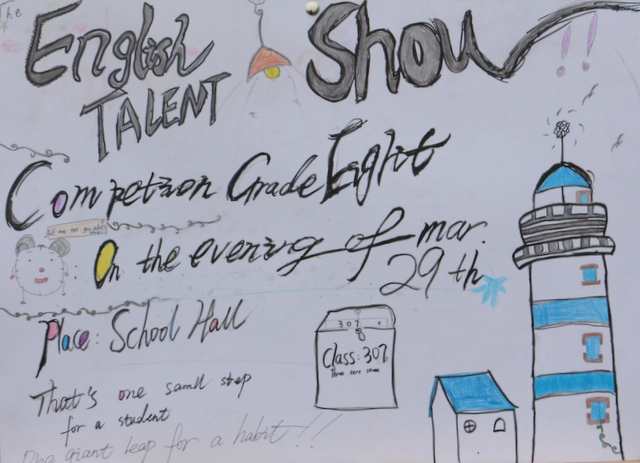 The
English Show
TALENT
Competion Grade Eight
On the evening of mar.
29 th
Place: School Hall
307
Class: 307
three zero seven
That's one samll step
for a student
One giant leap for a habit!!